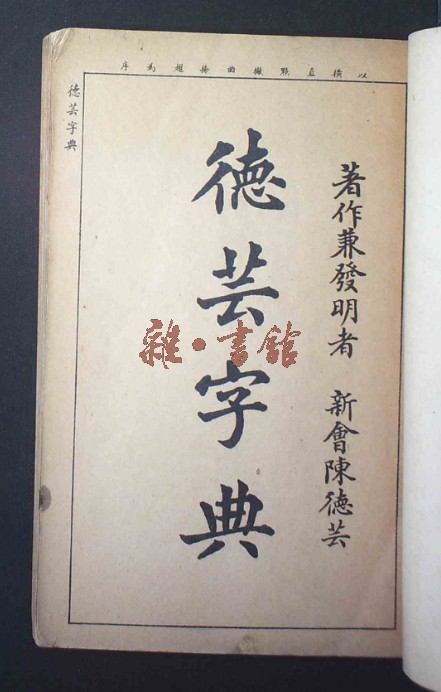 以橫直點撇曲捺趯為序
著作兼發明者 新會陳德芸
德芸字典
德芸字典
雜·書館